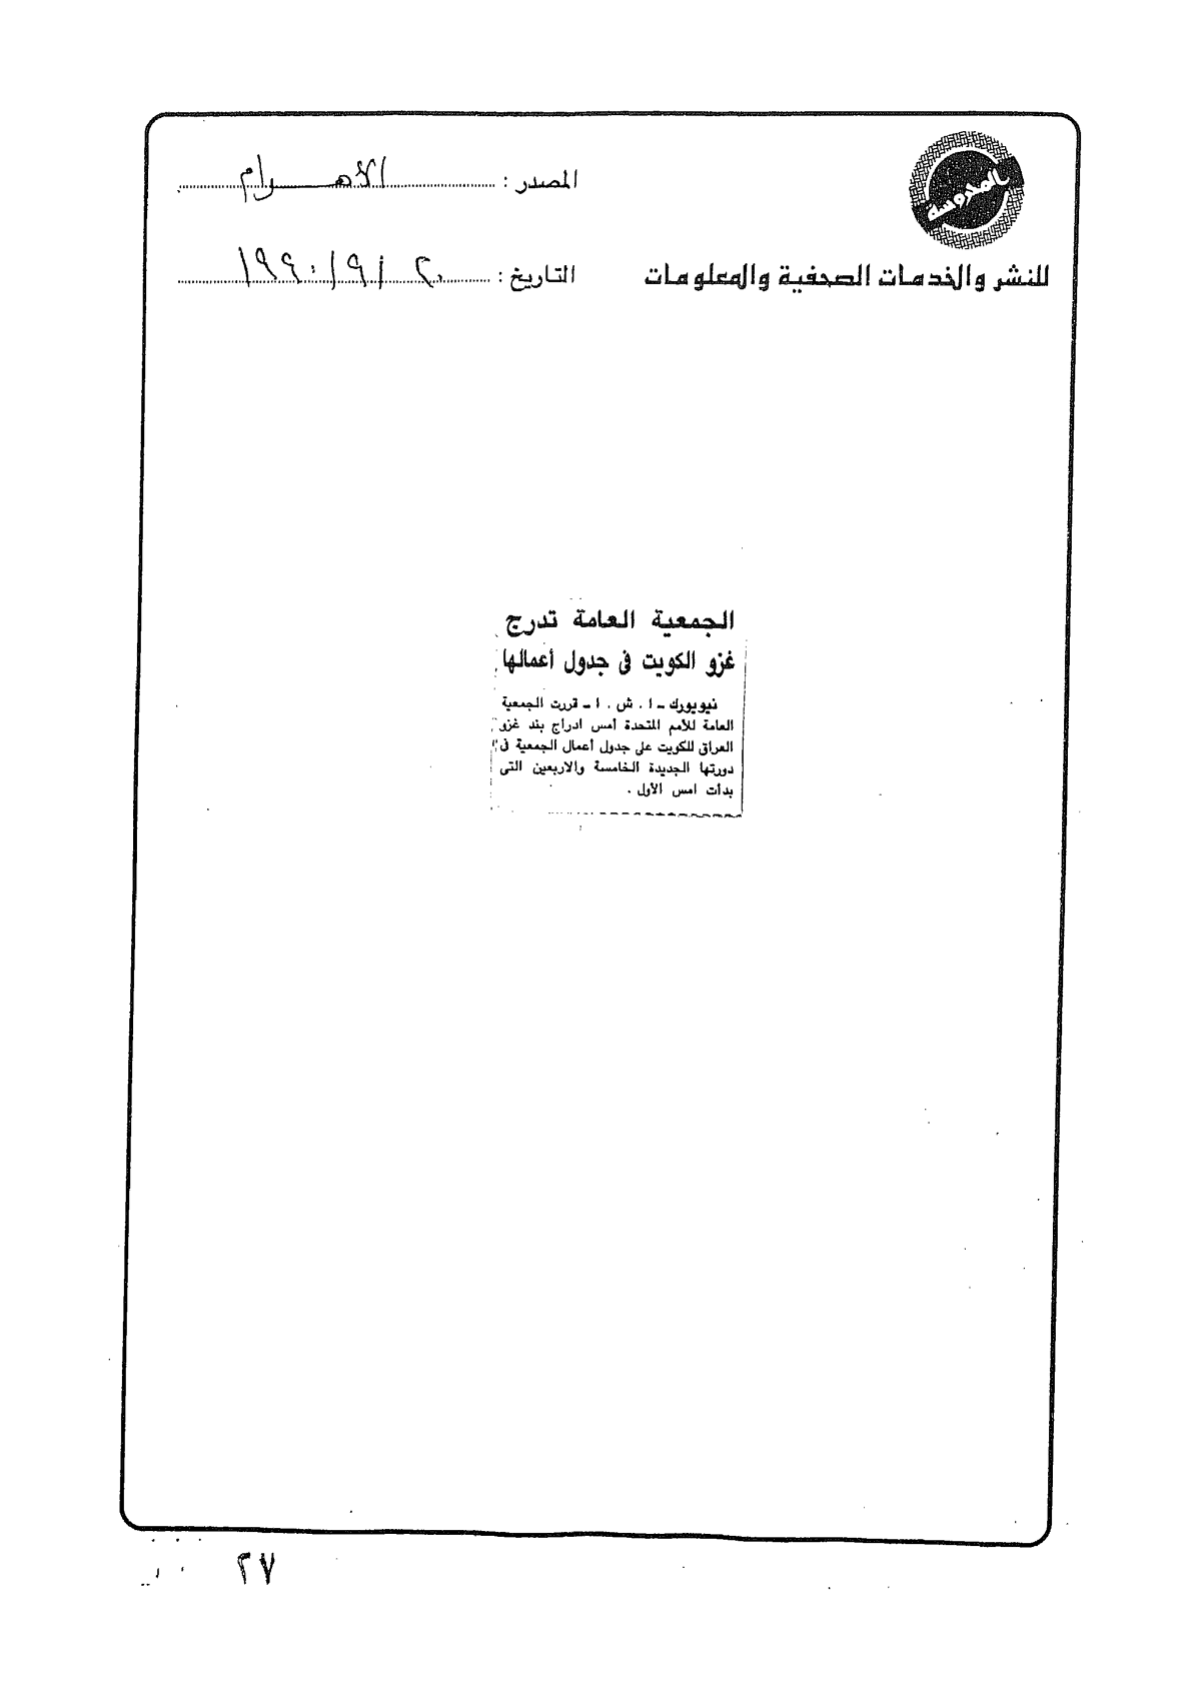 المحروسة
للنشر والخدمات الصحفية والمعلومات
المصدر : الأهرام
التاريخ : ٢٠ / ٩ / ١٩٩٠
الجمعية العامة تدرج
غزو الكويت فى جدول أعمالها
نيويورك - ا . ش . ا - قررت الجمعية
العامة للأمم المتحدة أمس ادراج بند غزو
العراق للكويت على جدول أعمال الجمعية فى
دورتها الجديدة الخامسة والاربعين التى
بدأت امس الأول .
٢٧